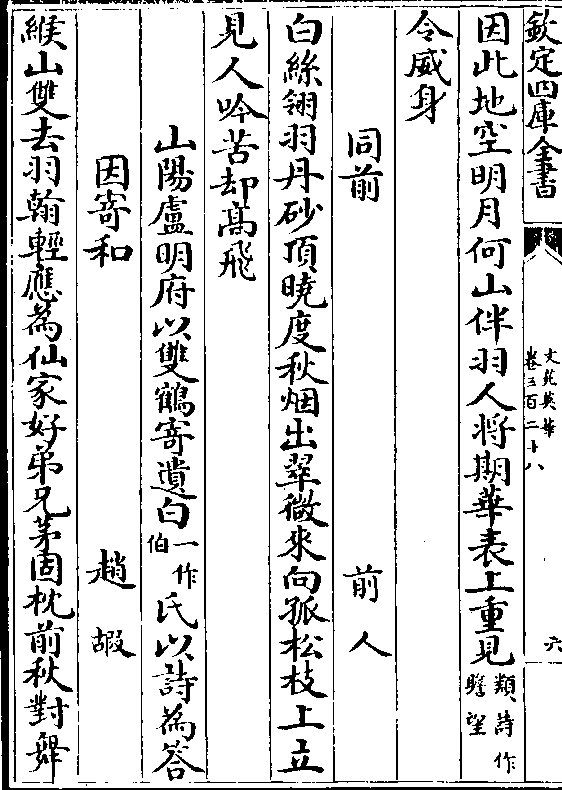 欽定四庫全書
文苑英華
卷三百二十八
六
因此地空明月何山伴羽人将期華表上重見類詩作瞻望
令威身
同前 前人
白絲翎羽丹砂頂曉度秋烟出翠微來向孤松枝上立
見人吟苦却髙飛
山陽盧明府以雙鶴寄遺白一作伯氏以詩為答
因寄和 趙嘏
緱山雙去羽翰輕應為仙家好弟兄茅固枕前秋對舞